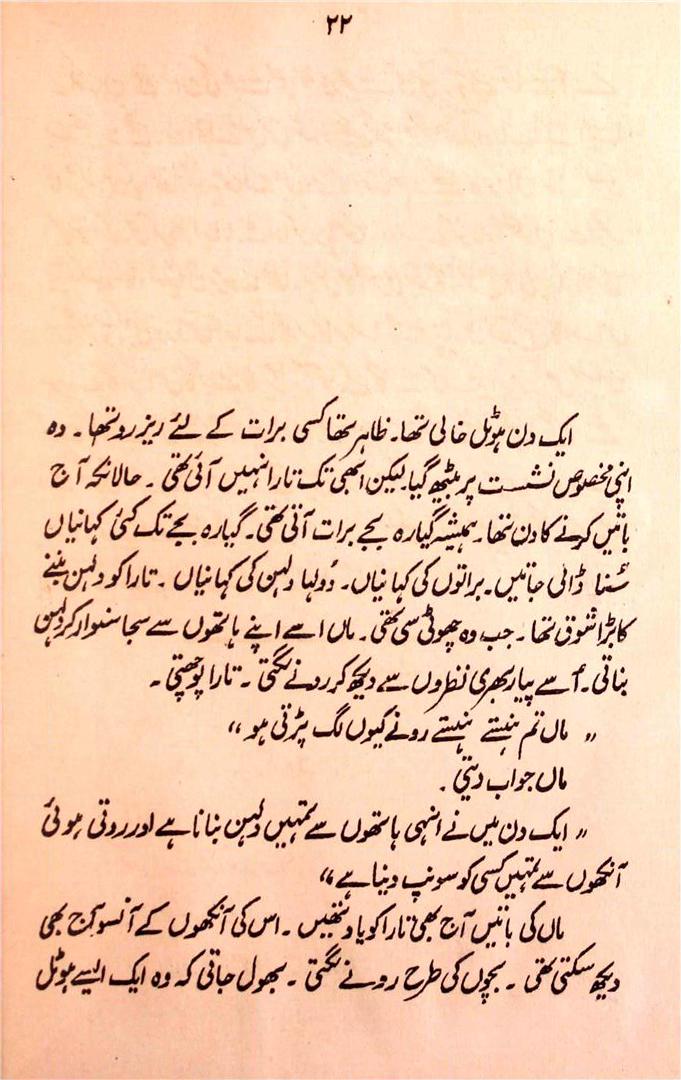 ۲۲
ایک دن ہوٹل خالی تھا۔ ظاہر تھا کسی برات کے لئے ریزرو تھا۔ وہ
اپنی مخصوص نشست پر بیٹھ گیا۔ لیکن ابھی تک تارا نہیں آئی تھی۔ حالانکہ آج
باتیں کرنے کا دن تھا۔ ہمیشہ گیارہ بجے برات آتی تھی۔ گیارہ بجے تک کئی کہانیاں
سُنا ڈالی جاتیں۔ براتوں کی کہانیاں۔ دُولہا دلہن کی کہانیاں۔ تارا کو دلہن بننے
کا بڑا شوق تھا۔ جب وہ چھوٹی سی تھی۔ ماں اسے اپنے ہاتھوں سے سجا سنوار کر دلہن
بناتی۔ اُسے پیار بھری نظروں سے دیکھ کر رونے لگتی۔ تارا پوچھتی۔
”ماں تم ہنستے ہنستے رونے کیوں لگ پڑتی ہو“
ماں جواب دیتی۔
”ایک دن میں نے انہی ہاتھوں سے تمہیں دلہن بنانا ہے اور روتی ہوئی
آنکھوں سے تمہیں کسی کو سونپ دینا ہے“
ماں کی باتیں آج بھی تارا کو یاد تھیں۔ اس کی آنکھوں کے آنسو آج بھی
دیکھ سکتی تھی۔ بچوں کی طرح رونے لگتی۔ بھول جاتی کہ وہ ایک ایسے ہوٹل